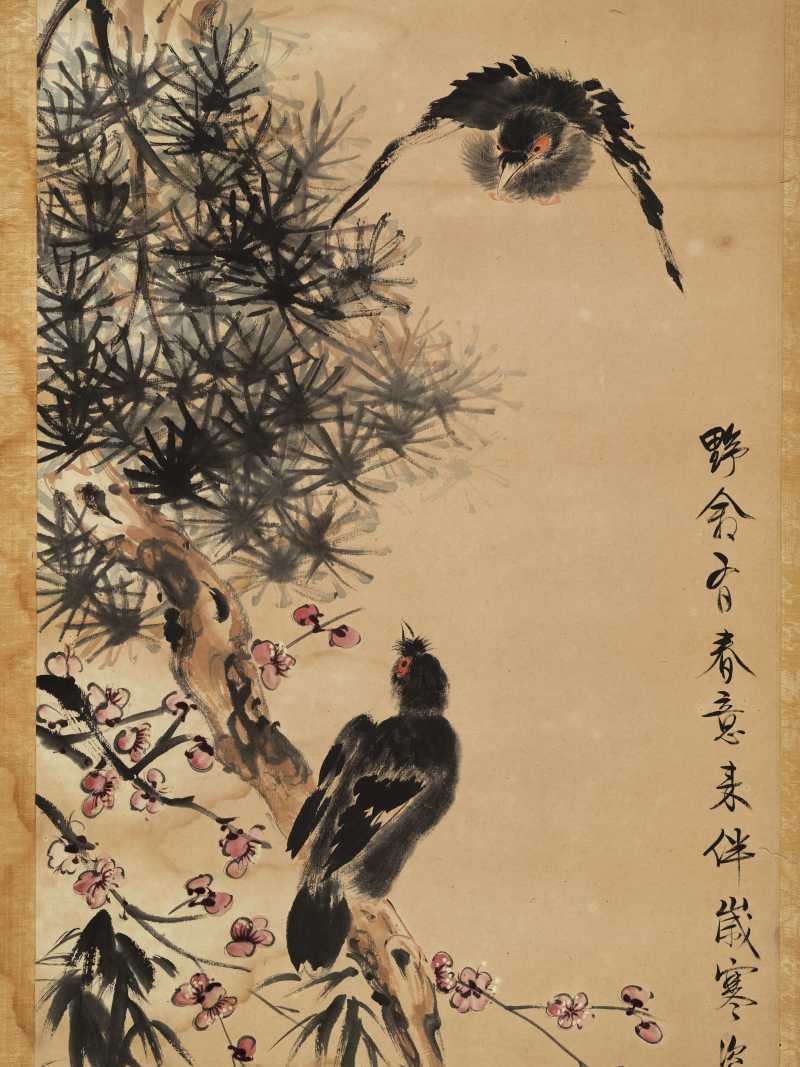 野禽有春意来伴歲寒